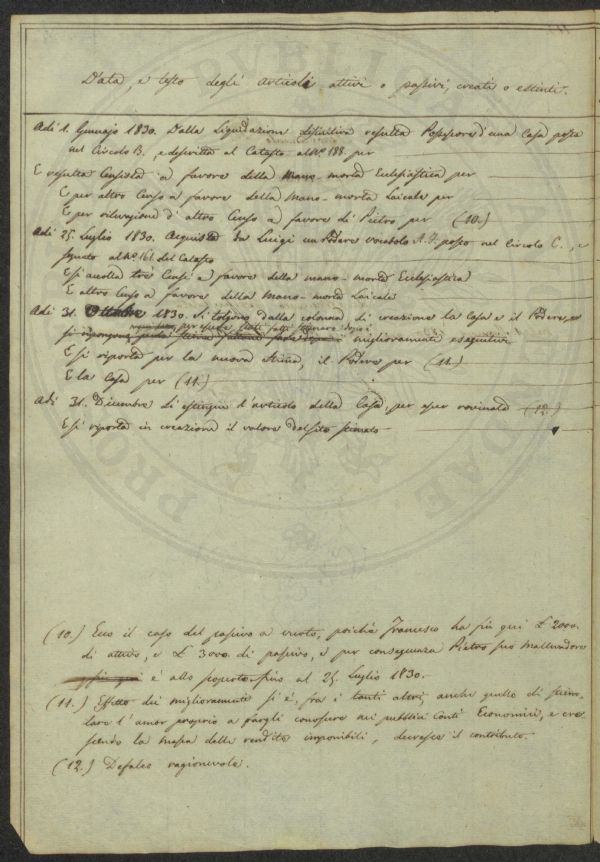 Data, e testo degli articoli attivi o passivi, creati o estinti.
Adì 1. Gennajo 1830. Dalla Liquidazione definitiva resulta Possessore d'una Casa posta
nel Circolo B. e descritta al Catasto al Nº 188. per
E resulta Censita a favore della Mano-morta Eclesiastica per
E per altro Censo a favore della Mano-morta Laicale per
E per riduzione d'altro Censo a favore di Pietro per (10.)
Adì 25. Luglio 1830. Acquista da Luigi un Podere vocabolo A. F. posto nel Circolo C., e
segnato al Nº 161. del Catasto
E si accolla tre Censi a favore della mano-morta Ecclesiastica
E altro Censo a favore della Mano-morta Laicale
Adì 31. Ottobre 1830. Si tolgono dalla colonna di creazione la Casa e il Podere, per
essere stati fatti stimare dopo i
si riportano miglioramenti eseguitivi
E si riporta per la nuova Stima, il Podere per (11.)
E la Casa per (11.)
Adì 31. Dicembre Si estingue l'articolo della Casa, per esser rovinata (12.)
E si riporta in creazione il valore del sito stimato
(10.) Ecco il caso del passivo a vuoto, poichè Francesco ha più qui £ 2000.
di attivo, e £ 3000. di passivo, e per conseguenza Pietro suo Mallevadore
è allo scoperto fino al 25. Luglio 1830.
(11.) Effetto dei miglioramenti si è, fra i tanti altri, anche quello di stimo-
lare l'amor proprio a fargli conoscere nei pubblici Conti Economici, e cre-
scendo la massa della rendita imponibili, decresce il contributo.
(12.) Defalco ragionevole.
PUBLI